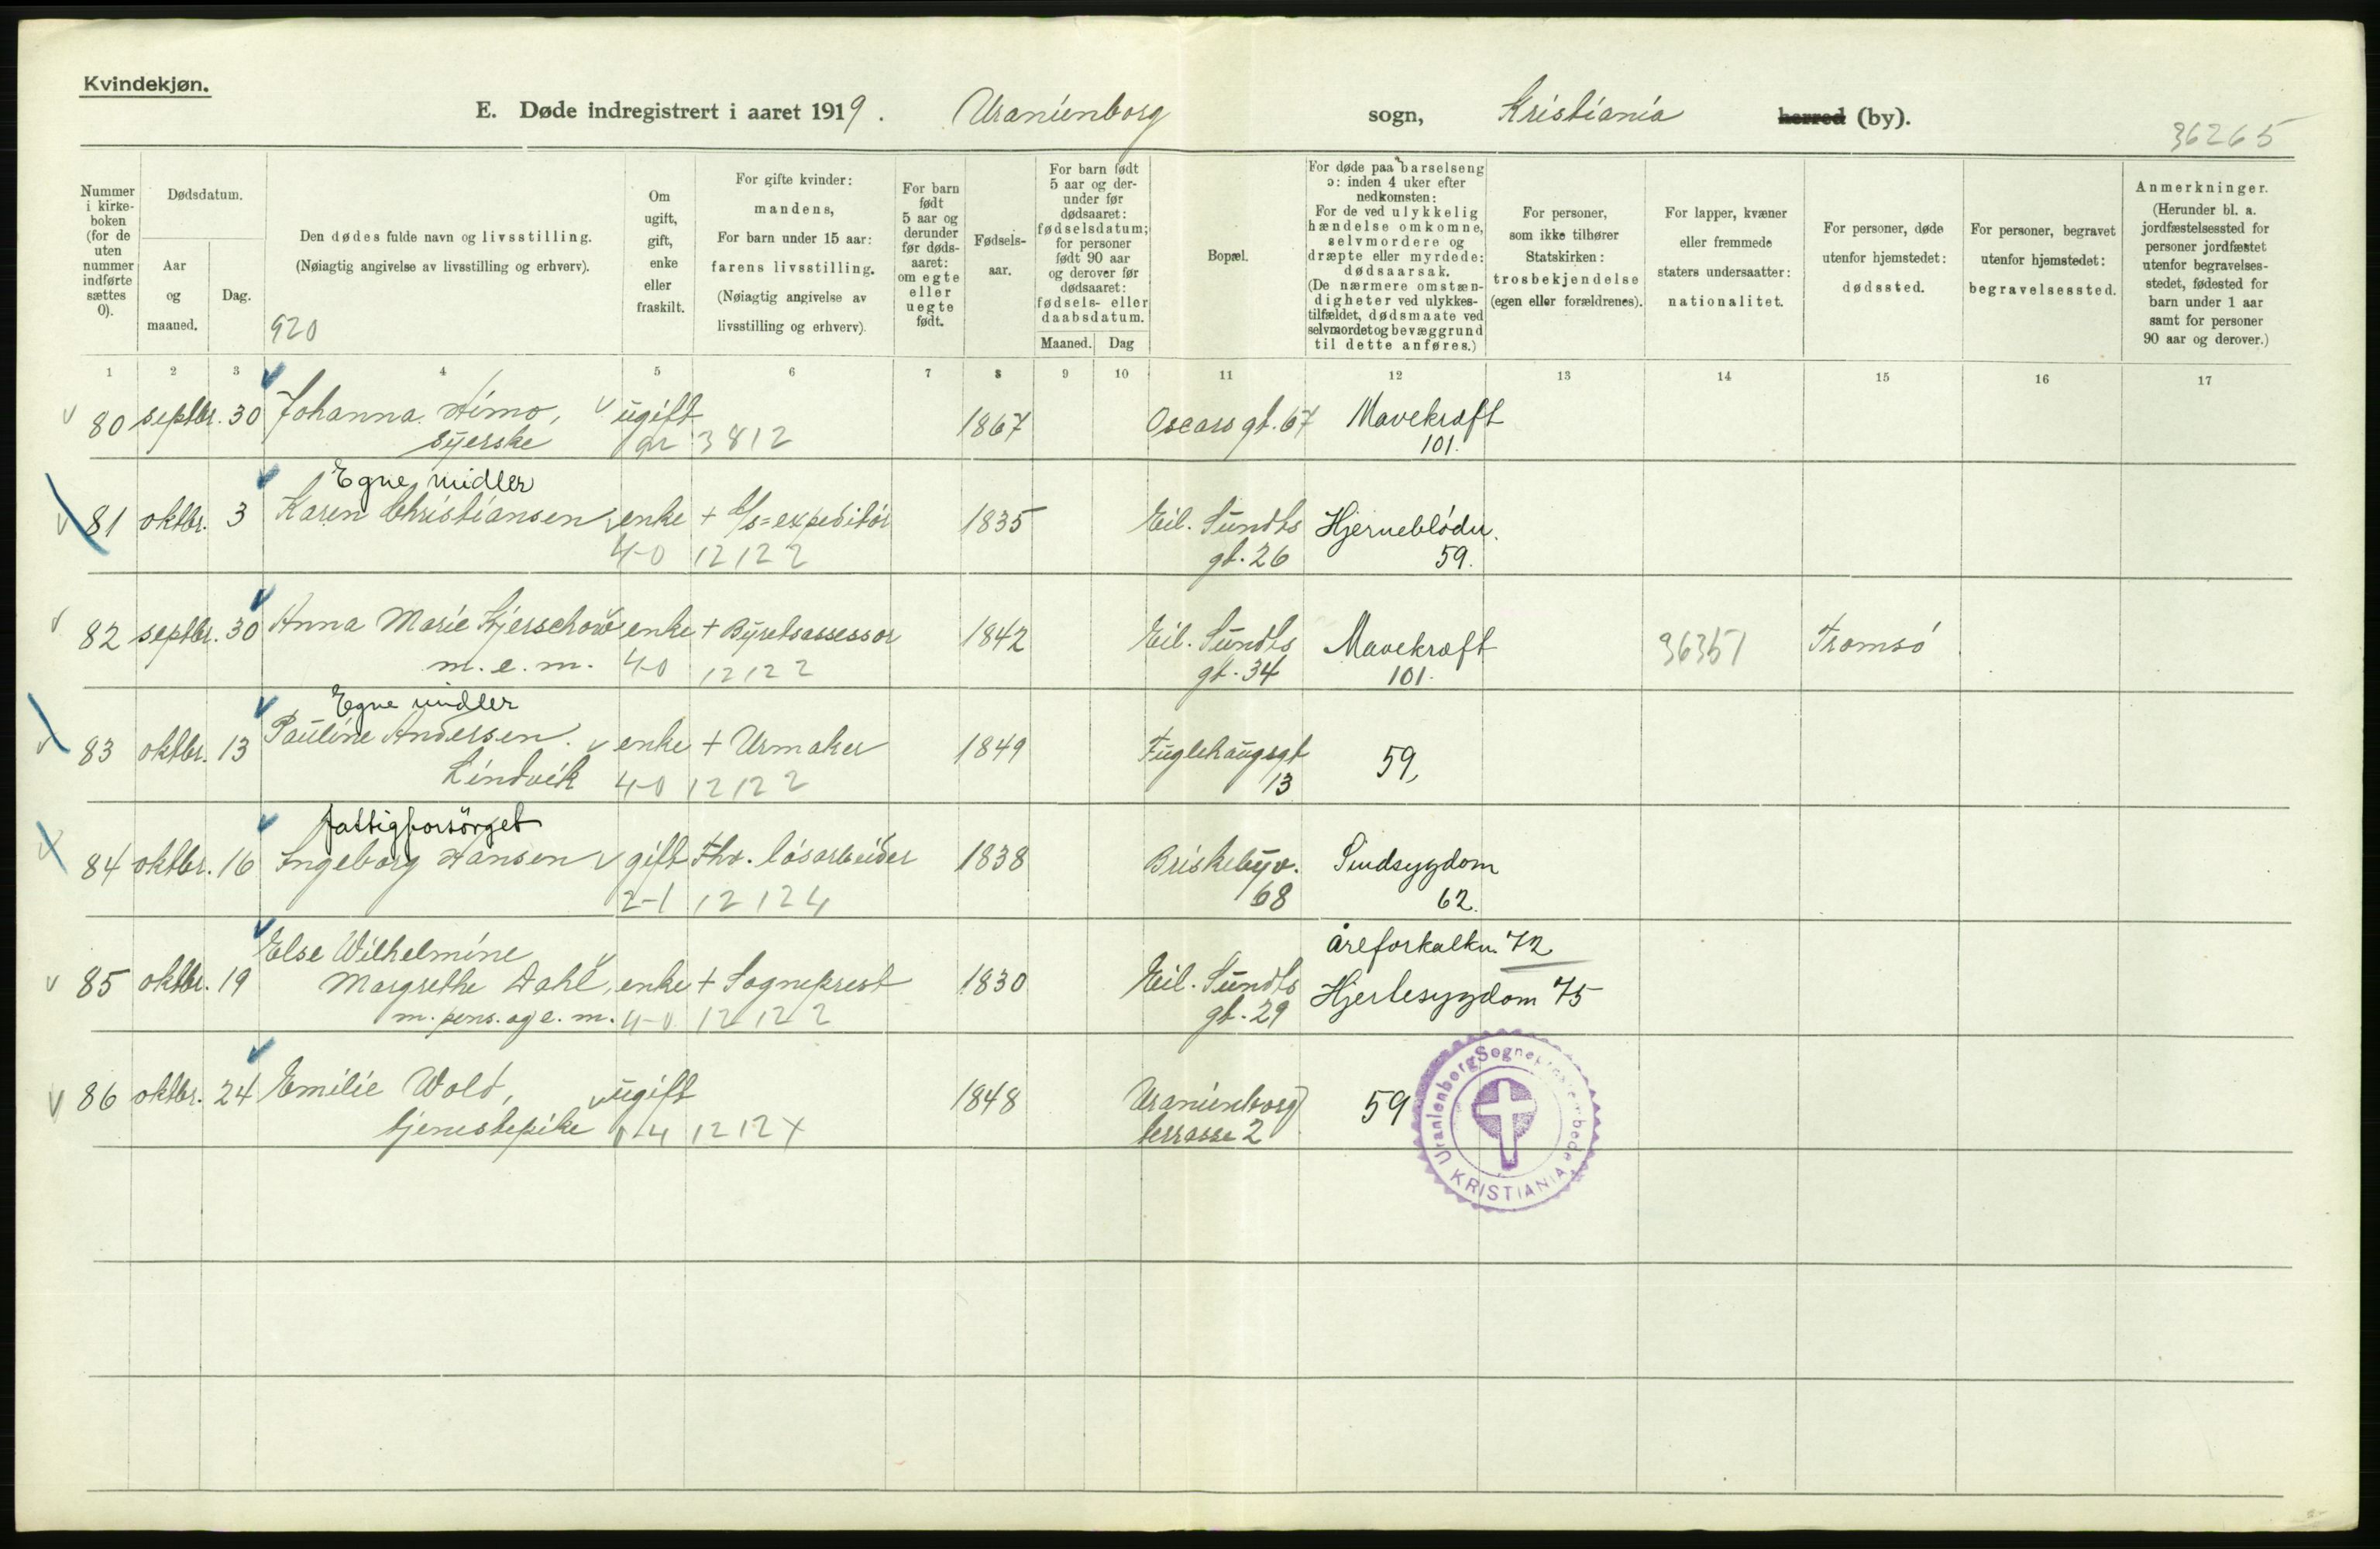 Kvindekjøn.
E. Døde indregistrert i aaret 1919. Uranienborg sogn, Kristiania herred (by).
36265
Nummer i kirke-boken (for de uten nummer indførte sættes 0).
Dødsdatum.
Aar og maaned.
Dag.
Den dødes fulde navn og livsstilling.
(Nøiagtig angivelse av livsstilling og erhverv).
920
Om ugift, gift, enke eller fraskilt.
For gifte kvinder: mandens,
For barn under 15 aar: farens livsstilling.
(Nøiagtig angivelse av livsstilling og erhverv).
For barn født 5 aar og derunder før døds-aaret: om egte eller uegte født.
Fødsels-aar.
For barn født 5 aar og der-under før dødsaaret: fødselsdatum; for personer født 90 aar og derover før dødsaaret: fødsels- eller daabsdatum.
Maaned. Dag
Bopæl.
For døde paa barselseng ɔ: inden 4 uker efter nedkomsten:
For de ved ulykkelig hændelse omkomne, selvmordere og dræpte eller myrdede: dødsaarsak.
(De nærmere omstæn-digheter ved ulykkes-tilfældet, dødsmaate ved selvmordet og bevæggrund til dette anføres.)
For personer, som ikke tilhører Statskirken: trosbekjendelse (egen eller forældrenes).
For lapper, kvæner eller fremmede staters undersaatter: nationalitet.
For personer, døde utenfor hjemstedet: dødssted.
For personer, begravet utenfor hjemstedet: begravelsessted.
Anmerkninger.
(Herunder bl. a. jordfæstelsessted for personer jordfæstet utenfor begravelses-stedet, fødested for barn under 1 aar samt for personer 90 aar og derover.)
1 2 3 4 5 6 7 8 9 10 11 12 13 14 15 16 17
80 septbr. 30 Johanna Aimo, ugift 1867 Oscars gt. 67 Mavekræft
syerske 3812 101.
Egne midler
81 oktbr. 3 Karen Christiansen enke + d/s=expeditør 1835 Eil. Sundts Hjerneblødn.
4-0 12122 gt. 26 59.
82 septbr. 30 Anna Marie Kjerschow enke + Byretsassessor 1842 Eil. Sundts Mavekræft 36351 Tromsø
m. e. m. 4-0 12122 gt. 34 101.
Egne midler
83 oktbr. 13 Pauline Andersen enke + Urmaker 1849 Fuglehaugsgt
Lindvik 4-0 12122 13 59,
fattigforsørget
84 oktbr. 16 Ingeborg Hansen gift Fhv. løsarbeider 1838 Briskebyv. Sindsygdom
2-1 12124 68 62.
Else Wilhelmine åreforkalkn. 72
85 oktbr. 19 Margrethe Dahl, enke + Sogneprest 1830 Eil. Sundts Hjertesygdom 75
m. pens. og e. m. 4-0 12122 gt. 29
86 oktbr. 24 Emilie Wold, ugift 1848 Uranienborg 59
tjenestepike 1-4 1212X terrasse 2
Uranienborg Sogneprestembede
KRISTIANIA